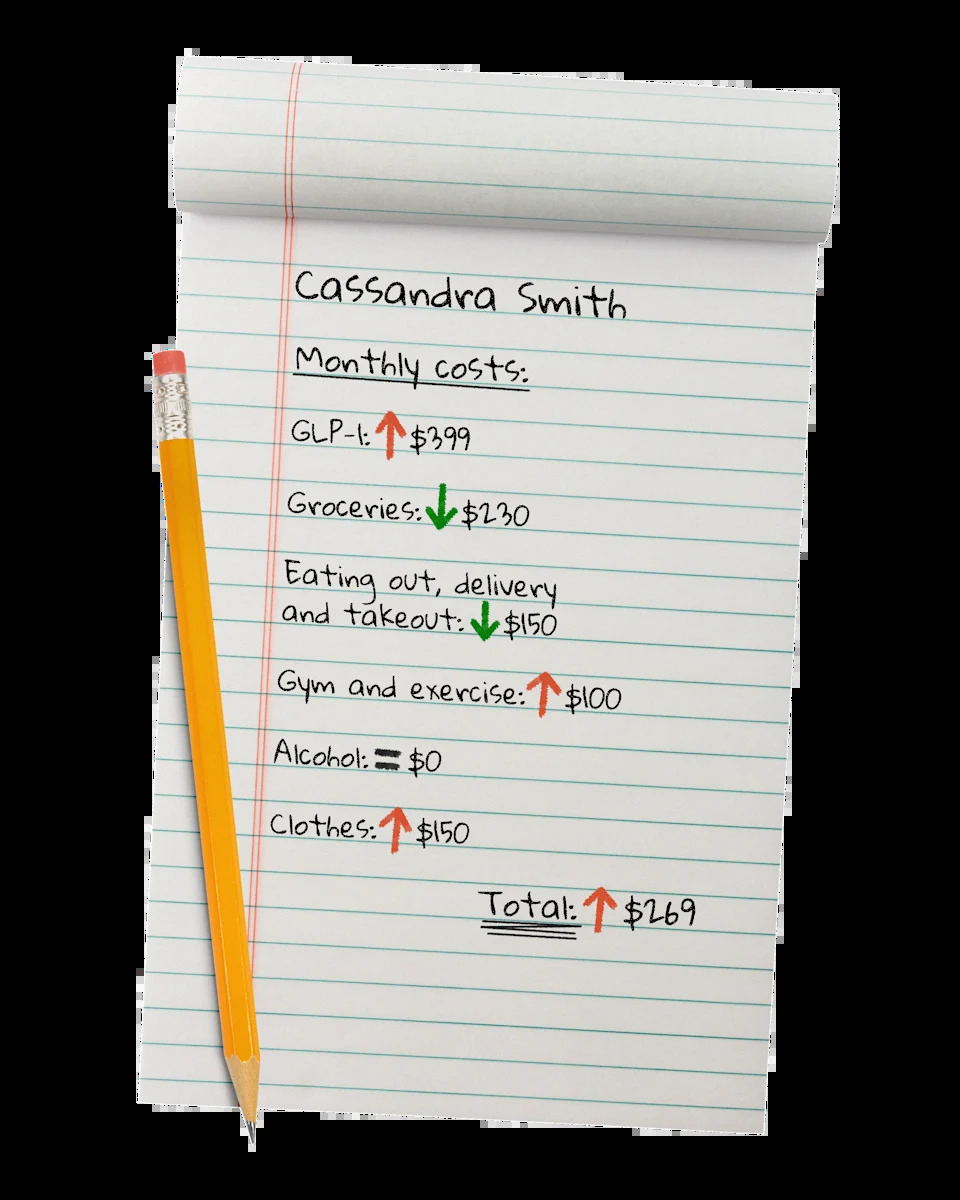 Cassandra Smith
Monthly costs:
GLP-1: ↑ $399
Groceries: ↓ $230
Eating out, delivery
and takeout: ↓ $150
Gym and exercise: ↑ $100
Alcohol: = $0
Clothes: ↑ $150
Total: ↑ $269